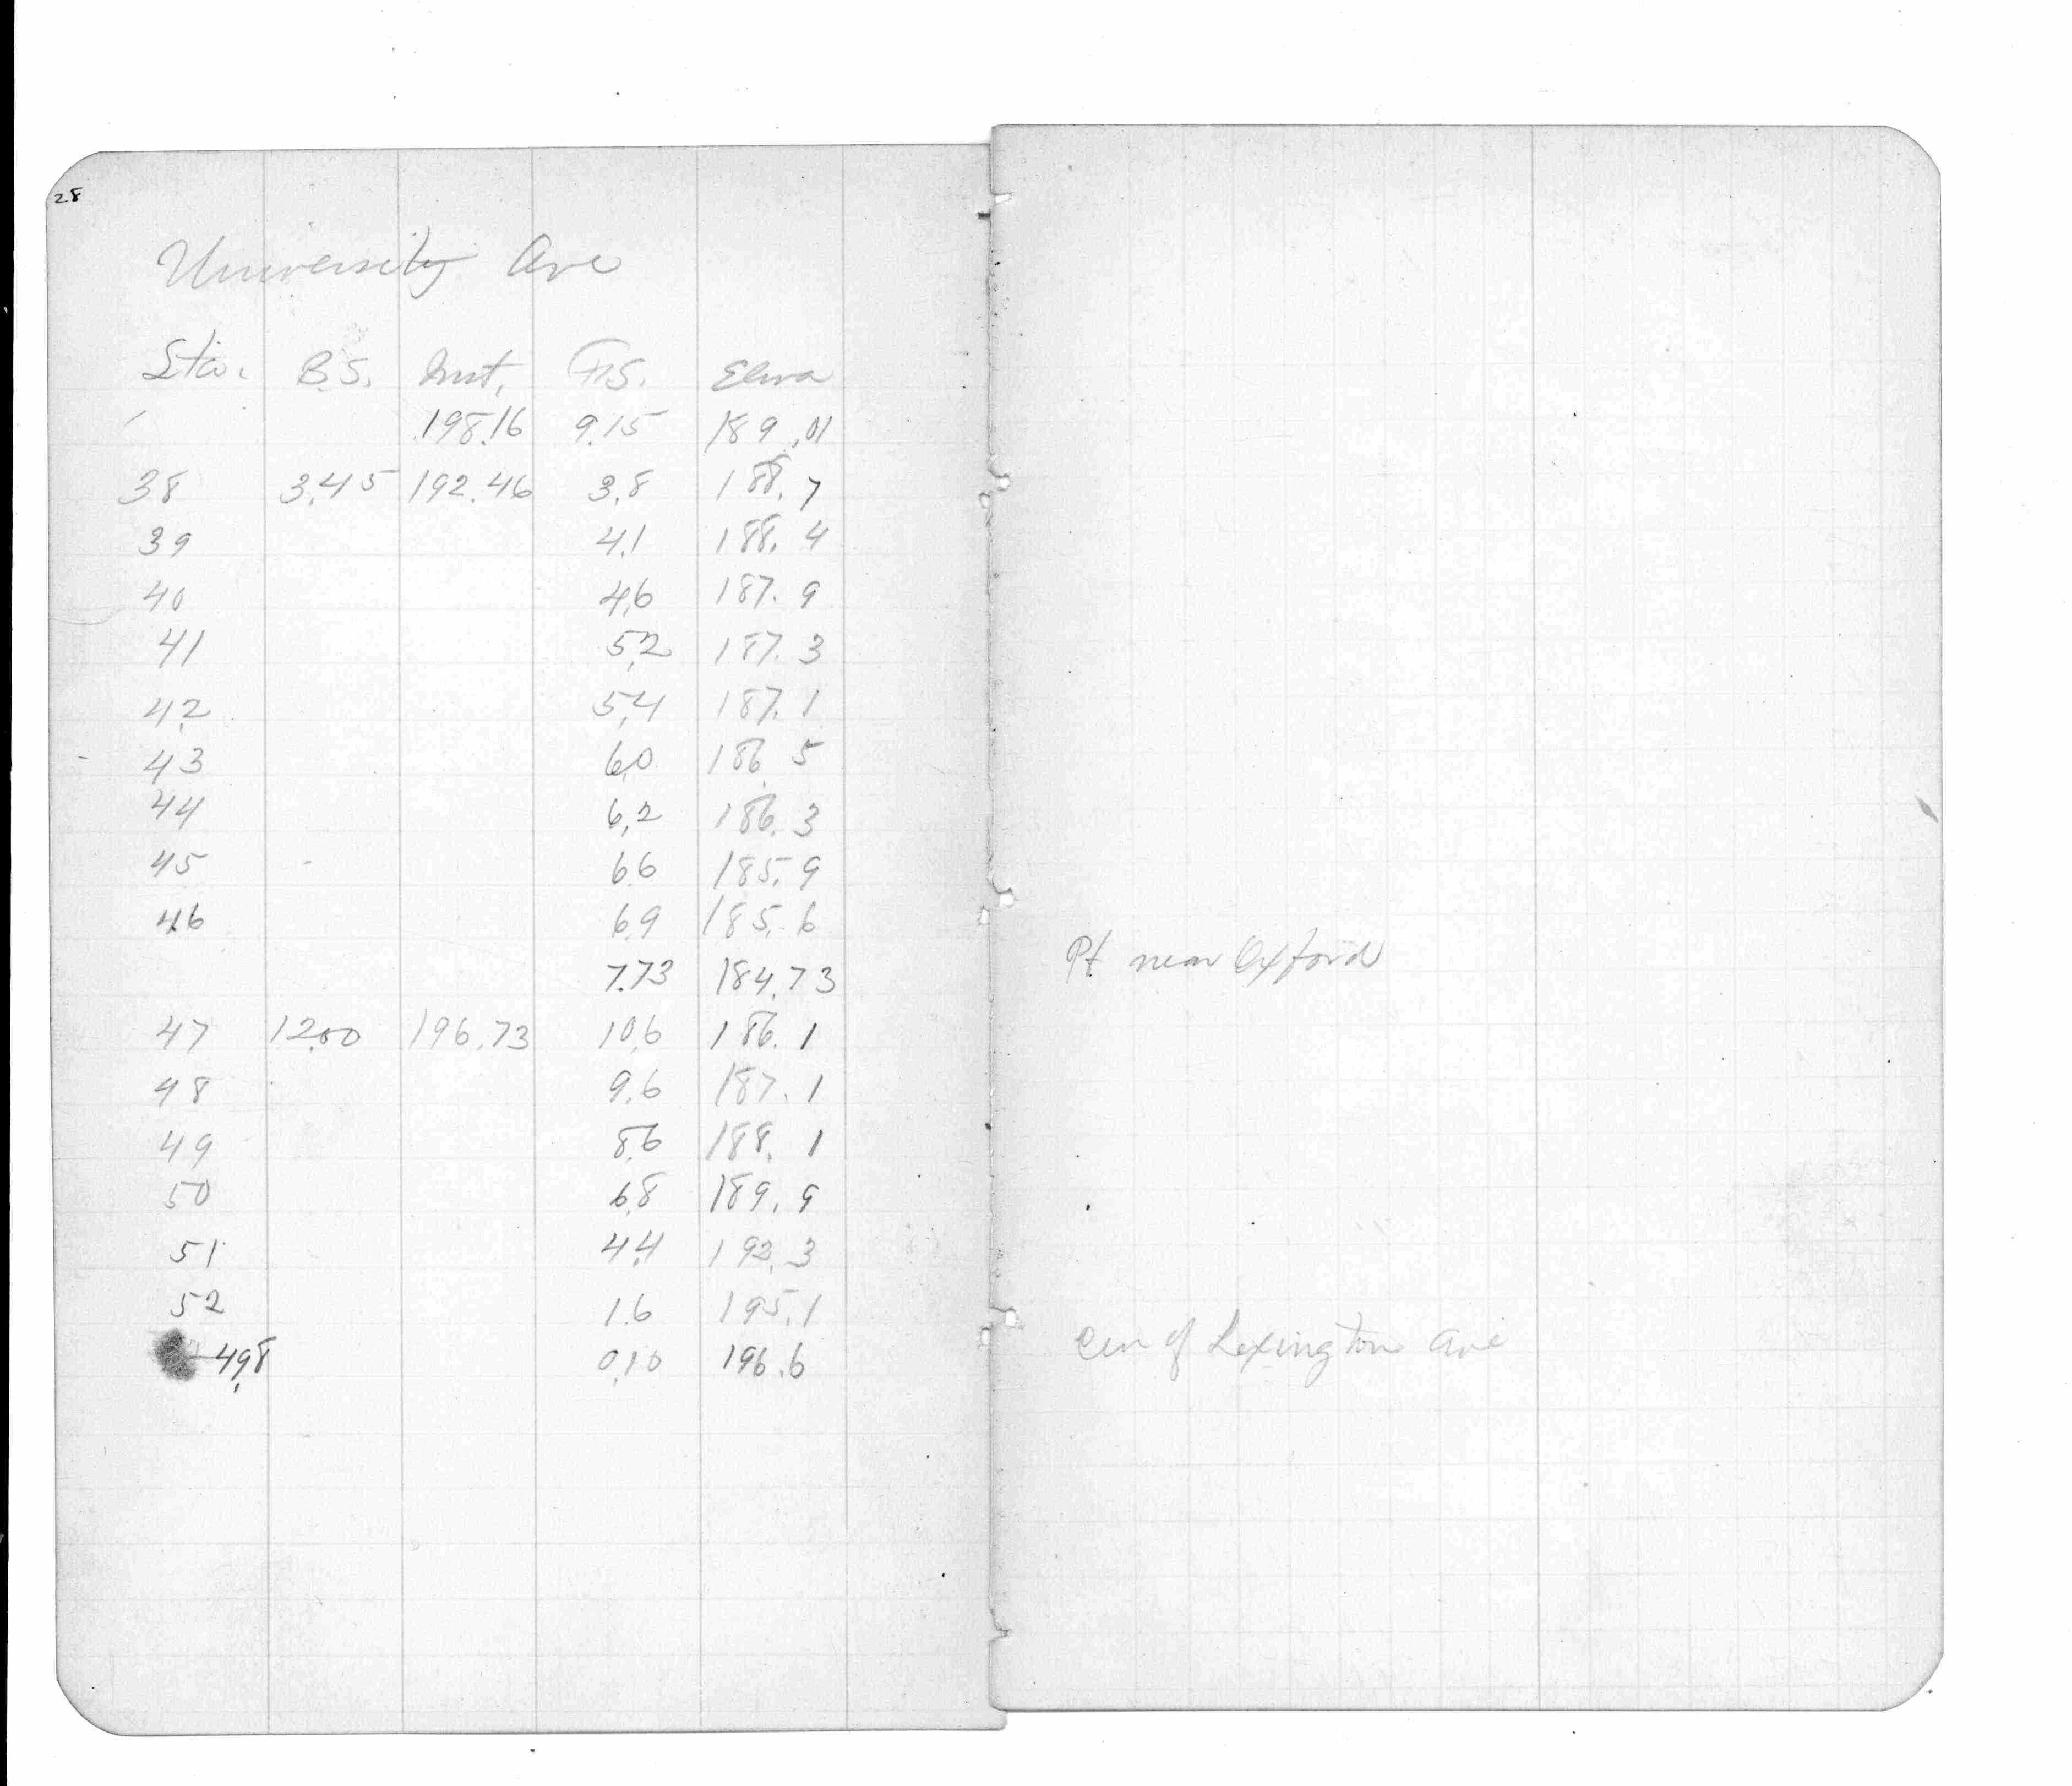 28
University Ave
Sta. B.S. Inst. F.S. Eleva
198.16 9.15 189.01
38 3.45 192.46 3.8 188.7
39 4.1 188.4
40 4.6 187.9
41 5.2 187.3
42 5.4 187.1
43 6.0 186.5
44 6.2 186.3
45 6.6 185.9
46 6.9 185.6
7.73 184.73 Pt near Oxford
47 12.00 196.73 10.6 186.1
48 9.6 187.1
49 8.6 188.1
50 6.8 189.9
51 4.4 192.3
52 1.6 195.1
49.8 0.10 196.6 Cen of Lexington Ave